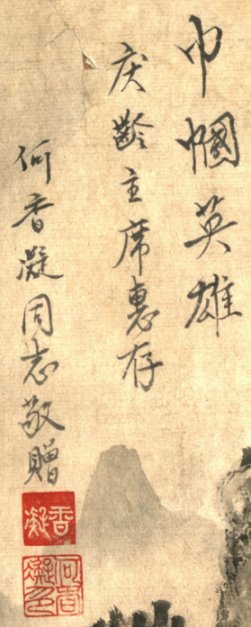 巾幗英雄
庆齡主席惠存
何香凝同志敬贈
香凝
何香凝印